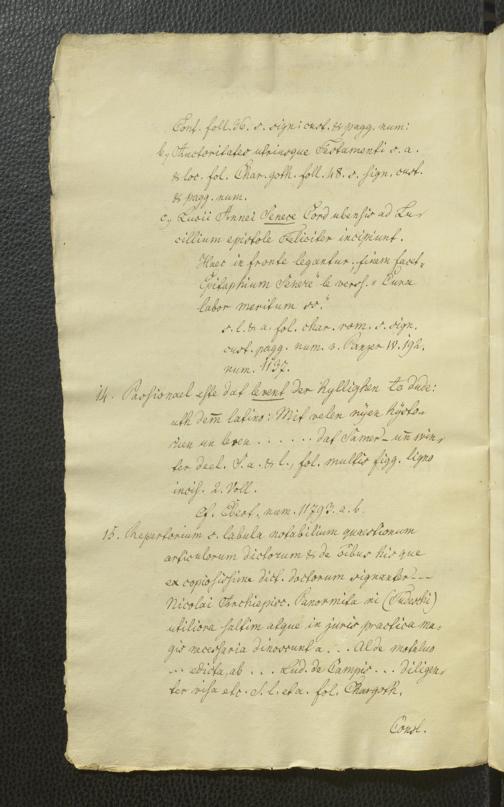 Cont. foll. 36. s. sign: cust. & pagg. num:
b, Auctoritates utriusque Testamenti s. a.
& loc. fol. Char. goth. foll. 48. s. sign. cust.
& pagg. num.
c, Lucii Annei Senece Cordubensis ad Lu-
cillium epistole Feliciter incipiunt.
Haec in fronte leguntur, finem facit
"Epitaphium Senece" 6 vers. "Cura
labor meritum ss."
s. l. & a. fol. char. rom. s. sign.
cust. pagg. num. v. Panzer IV. 192.
num. 1137.
14. Passionael efte dat levent der hyllighen to dude:
uth dem latino: Mit velen nyen hysto-
rien un leren . . . . . . dat Samer- un win-
ter deel. S. a. & l., fol. multis figg. ligno
incis. 2. Voll.
Cf. Ebert. num. 11793. a. b.
15. Repertorium s. tabula notabilium quaestionum
articulorum dictorum & de 
ex copiosissime dict. doctorum signanter ---
Nicolai Archiepisc. Panormitani (Tudeschi)
utiliora saltim atque in juris practica ma-
gis necessaria dinoscunt a . . . Alde
... edicta, ab . . . Lud. de Campis . . . diligen-
ter visa etc. S. l. et a. fol. Char goth.
Const.